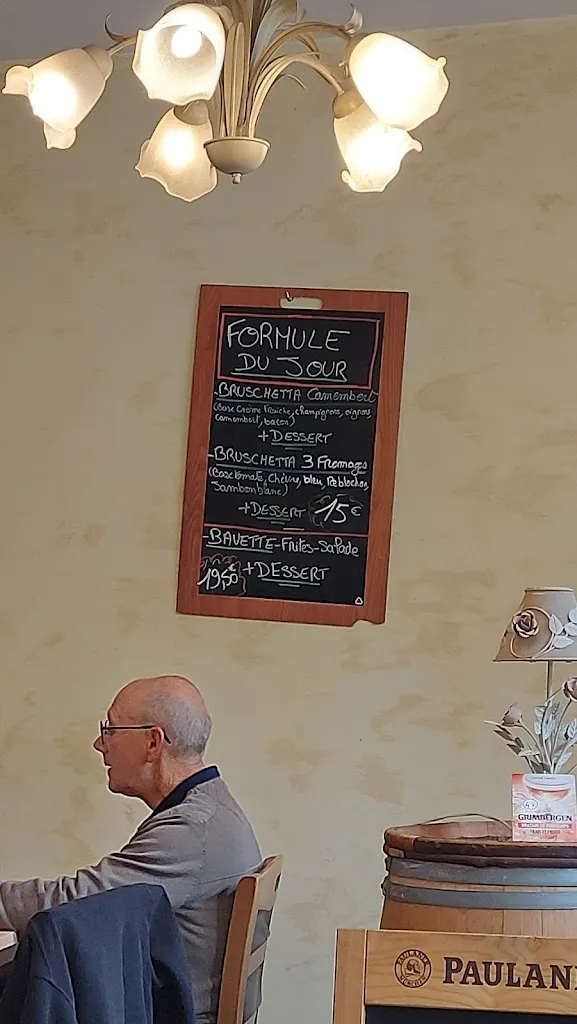 FORMULE
DU JOUR
-BRUSCHETTA Camembert
(Base Crème Fraîche, champignons, oignons,
Camembert, bacon)
+DESSERT
-BRUSCHETTA 3 Fromages
(Base tomate, Chèvre, bleu, Reblochon,
Jambon blanc)
+DESSERT 15€
-BAVETTE-Frites-Salade
19,50€ +DESSERT
GRIMBERGEN
PAULAN